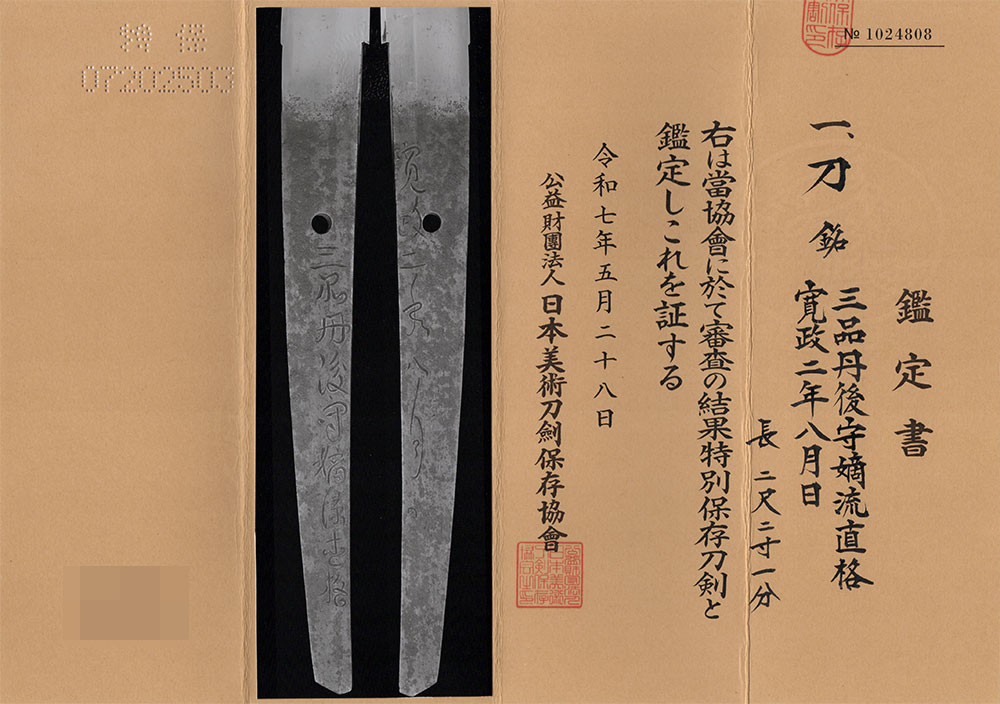 № 1024808
鑑定書
一、刀 銘 三品丹後守嫡流直格
寛政二年八月日
長 二尺二寸一分
右は當協會に於て審査の結果特別保存刀剣と
鑑定しこれを証する
令和七年五月二十八日
公益財團法人 日本美術刀劍保存協會
寛政二年八月日
三品丹後守嫡流直格
特保
07202503